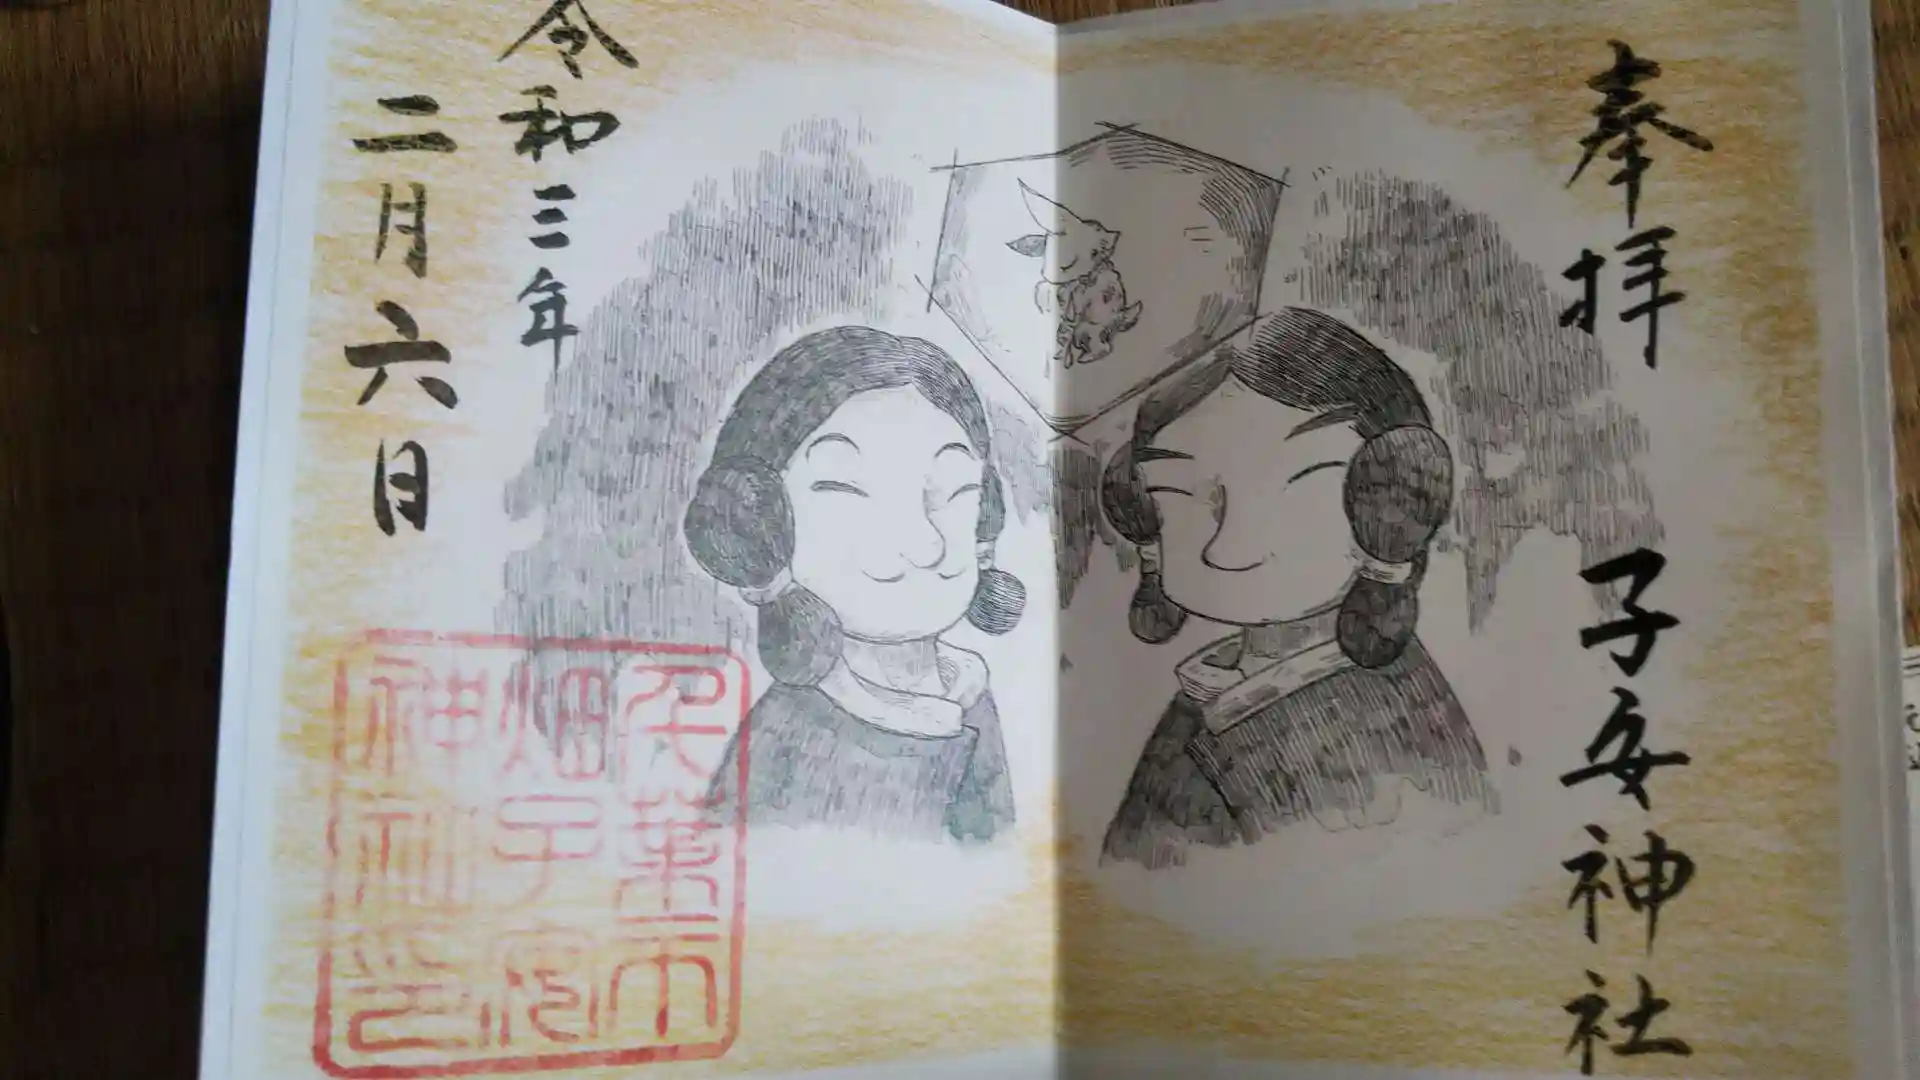 奉拝
子安神社
令和三年
二月六日
千葉市
畑子安
神社印